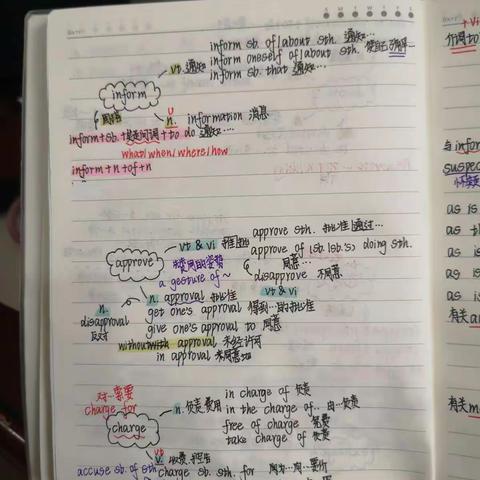 inform sb. of/about sth. 通知…
vt.通知 inform oneself of/about sth.
inform sb. that 通知…
inform
n. information 消息
inform+sb.+疑问词+to do 通知…
what/when/where/how
inform+n+of+n
approve sth. 批准 通过…
vt & vi
approve of (sb./sb's) doing sth.
approve
同意
a gesture of~
disapprove 不同意
vt & vi
n. approval 批准
n.
disapproval
反对
get one's approval 得到…的批准
give one's approval to 同意
without approval 未经许可
in approval
对…需要
charge for
in charge of 负责
n.负责 费用 in the charge of.. 由…负责
free of charge 免费
take charge of 负责
charge
vt.
v. 收费.控告
accuse sb. of sth.
charge sb. sth. for 因为…向…要价
+vi
介词to
与infor
suspec
怀疑
as is
as th
as is
as is
as is
有关a
有关m